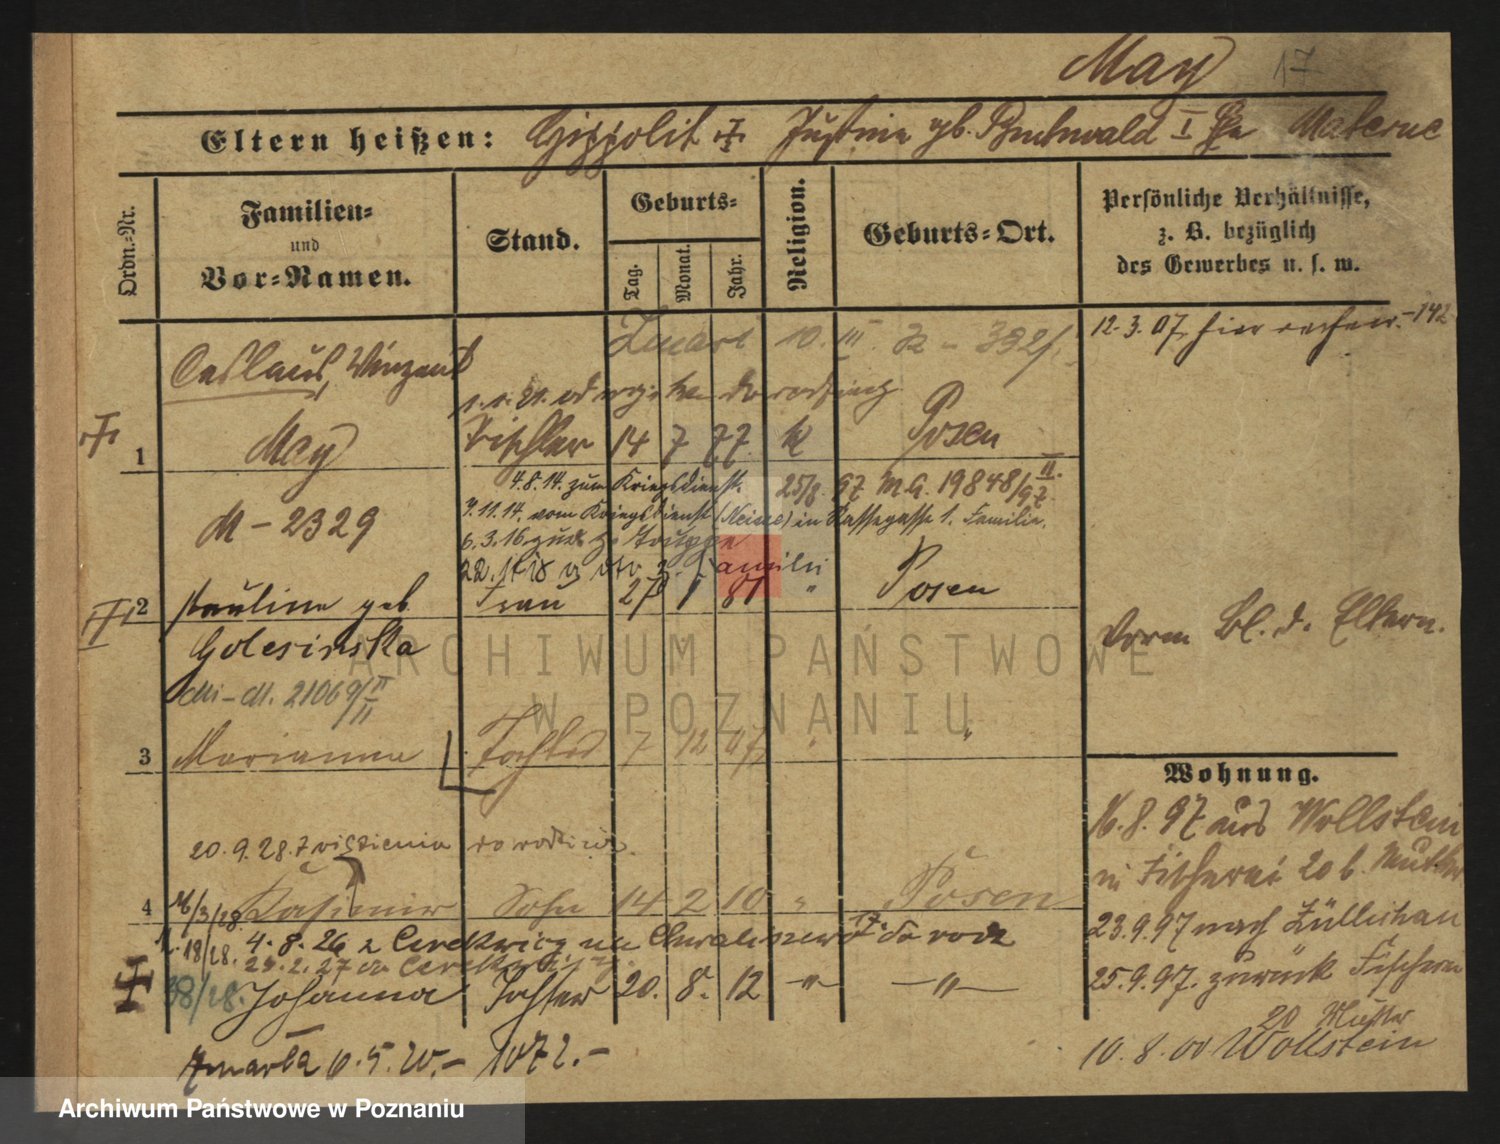 May 17
Eltern heißen: Hippolit Justine geb. Buchwald I Materne
Ordn.-Nr.
Familien- und Vor-Namen.
Stand.
Geburts-
Tag. Monat. Jahr.
Religion.
Geburts-Ort.
Persönliche Verhältnisse, z. B. bezüglich des Gewerbes u. s. w.
12. 3. 07. hier 142
Zmarł 10. III
Caslaus, Winzent
1. 1. 21. do rodziny
1 May Tischler 14 7 77 k Posen
4. 8. 14. zum Kriegsdienst 25/8. 97 M.A. 19848/97 II.
M - 2329
7. 11. 14. vom Kriegsdienst (Neisse) in 1. Familie.
6. 3. 16. zur Truppe
Familie
2 Pauline geb. Frau 27 81 " Posen
Golesinska
vorm Bl. d. Eltern.
3 Marianna Tochter 7 12 "
Wohnung.
16. 8. 97 aus Wollstein
20. 9. 28. z więzienia do rodziny.
n Fischerei 20 b. Mutter
4 16/3/28. Kasimir Sohn 14 2 10 " Posen
23. 9. 97 nach Züllichau
18/28. 4. 8. 26 z Cerekwicy na Chwaliszewo 17. do rodz
23. 2. 27 do Cerekwicy
38/28. Johanna Tochter 20. 8. 12 " "
25. 9. 97. zurück Fischerei
20 Mutter
Zmarła 6. 5. 20. - 1072. -
10. 8. 00 Wollstein
ARCHIWUM PAŃSTWOWE
W POZNANIU
Archiwum Państwowe w Poznaniu